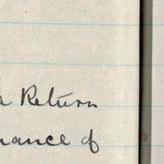 Return
nance of